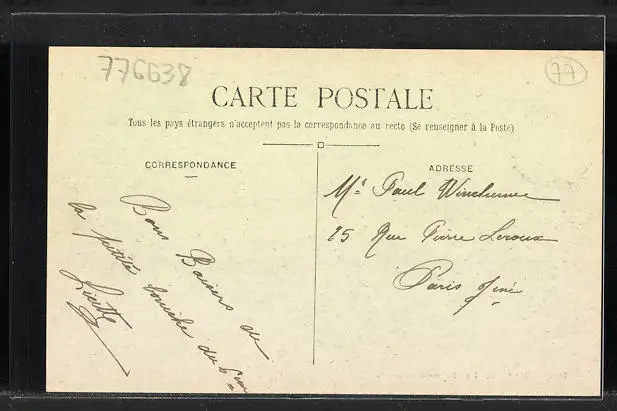 776638
77
CARTE POSTALE
Tous les pays étrangers n'acceptent pas la correspondance au recto (Se renseigner à la Poste)
CORRESPONDANCE
Bons Baisers de
la petite bouche du 6eme
ADRESSE
Mr Paul
25 Rue Pierre Leroux
Paris 7eme